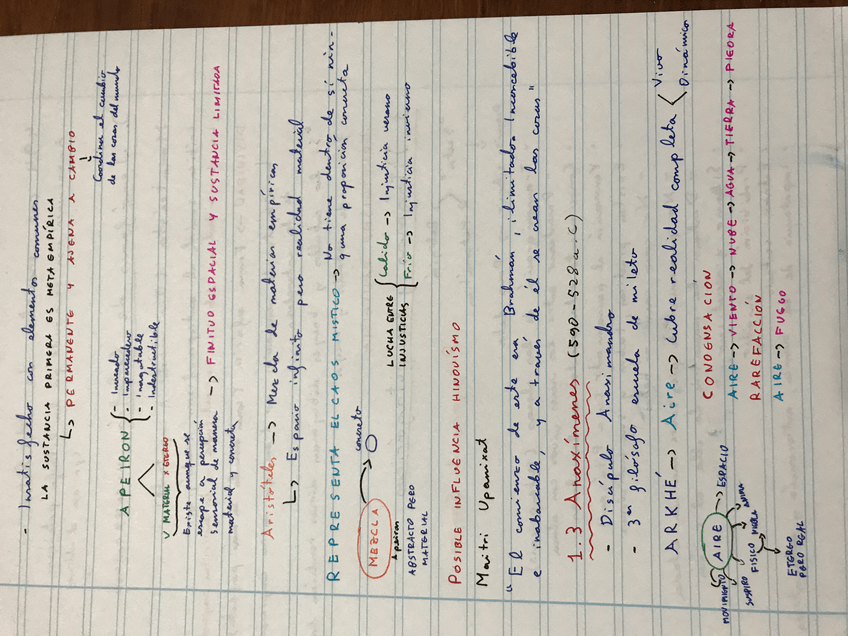 - Insatisfecho con elementos comunes
LA SUSTANCIA PRIMERA ES META EMPÍRICA
↳ PERMANENTE Y AJENA A CAMBIO
↓
Coordinar el cambio
de las cosas del mundo
APEIRON { - Increado
- Imperecedero
- Inagotable
- Indestructible
V MATERIAL X ETEREO
Existe aunque se
escape a percepción
sensorial de manera
material y concreta
-> FINITUD ESPACIAL Y SUSTANCIA LIMITADA
Aristóteles -> Mezcla de materias empíricas
↳ Espacio infinito pero realidad material
REPRESENTA EL CAOS MISTICO -> No tiene dentro de sí nin-
guna proposición concreta
MEZCLA
concreto
Apeiron
ABSTRACTO PERO
MATERIAL
LUCHA ENTRE
INJUSTICIAS
{ Calido -> Injusticia verano
Frio -> Injusticia invierno
POSIBLE INFLUENCIA HINDUÍSMO
Maitri Upanixat
"El comienzo de este era Brahmán, ilimitado. Inconcebible
e inabarcable, y a través de él se crean las cosas"
1.3 Anaxímenes (590-528 a.C)
- Discípulo Anaximandro
- 3er filósofo escuela de mileto
ARKHÉ -> Aire -> Cubre realidad completa < Vivo
Dinámico
AIRE
MOVIMIENTO
SUSPIRO
FISICO
ANIMA
-> ESPACIO
ETEREO
PERO REAL
CONDENSACIÓN
AIRE -> VIENTO -> NUBE -> AGUA -> TIERRA -> PIEDRA
RAREFACCIÓN
AIRE -> FUEGO